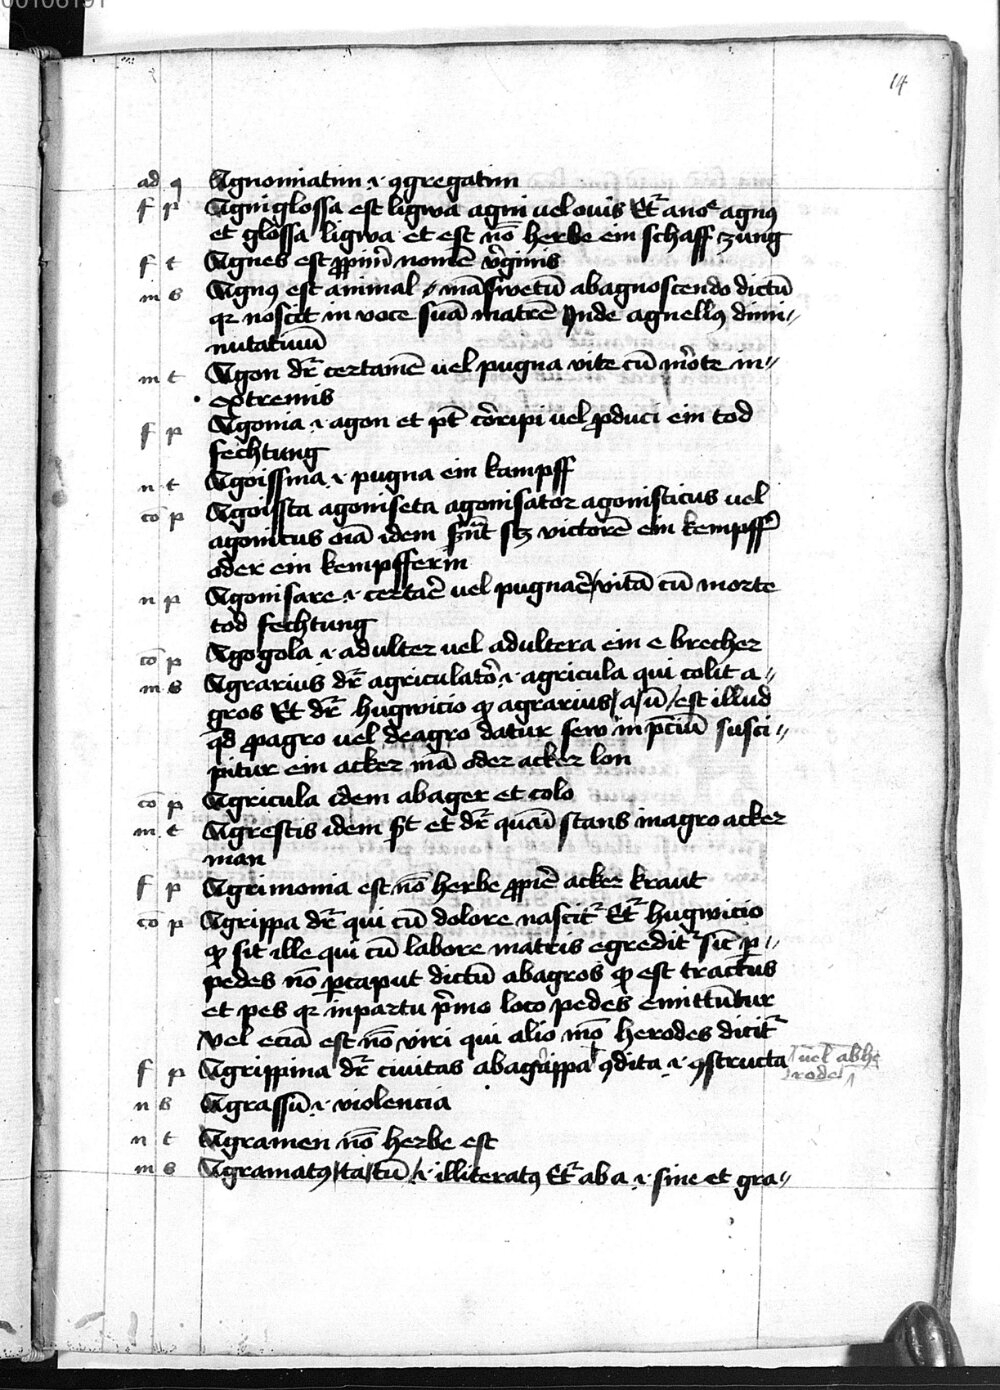 00106191
14
ad q Agnominatim .i. ꝯgregatim
f p Agniglossa est ligwa agni uel ouis Et̄ ano͛ agnꝰ
et glossa ligwa et est nō herbe ein schaff zung
f t Agnes est ꝓpriū nomē v̓ginis
m s Agnꝰ est animal māswetū abagnoscendo dictū
qr noscit in voce suā matrē Inde agnellꝰ dimi〃
nutatiuū
m t Agon dr̄ certamē uel pugna vite cū mo̓te in〃
extremis
f p Agonia .i. agon et pt̄ cor̄ipi uel ꝓduci ein tod
fechtung
n t Agoissma .i. pugna ein kampff
cō p Agoissta agoniseta agonisator agonisticus uel
agonitus oīa idem sn̄t sꝫ victorē ein kempff̓
oder ein kempfferin
n p Agonisare .i. certar̄e uel pugnar̄e / vitā cū morte
tod fechtung
cō p Agogola .i. adulter uel adultera ein e brecher
m s Agrarius dr̄ agriculato̓ .i. agricula qui colit a〃
gros Et dr̄ hugwicio ꝙ agrarius / a / ū / est illud
qd ꝓagro uel deagro datur sew in p̄ciū susci〃
pitur ein acker mā oder acker lon
cō p Agricula idem abager et colo
m t Agrestis idem st̄ et dr̄ quasi stans inagro acker
man
f p Agrimonia est nō herbe ꝓpiē acker kraut
cō p Agrippa dr̄ qui cū dolore nascit̄ Et̄ hugwicio
ꝙ sit ille qui cū labore matris egredit̄ sic̄ p〃
pedes nō ꝑcaput dictū abagros ꝙ est tractus
et pes qr inpartu p̓mo loco pedes emittūtur
vel eciā est nō viri qui alio mō herodes dicit̄
f p Agrippina dr̄ ciuitas abag̓ppa ꝯdita .i. ꝯstructa
uel abhe
rode
n s Agrassū .i. violencia
n t Agramen nō herbe est
m s Agramatꝰ / ta / tū / .i. illiteratꝰ Et̄ ab a .i. sine et gra〃